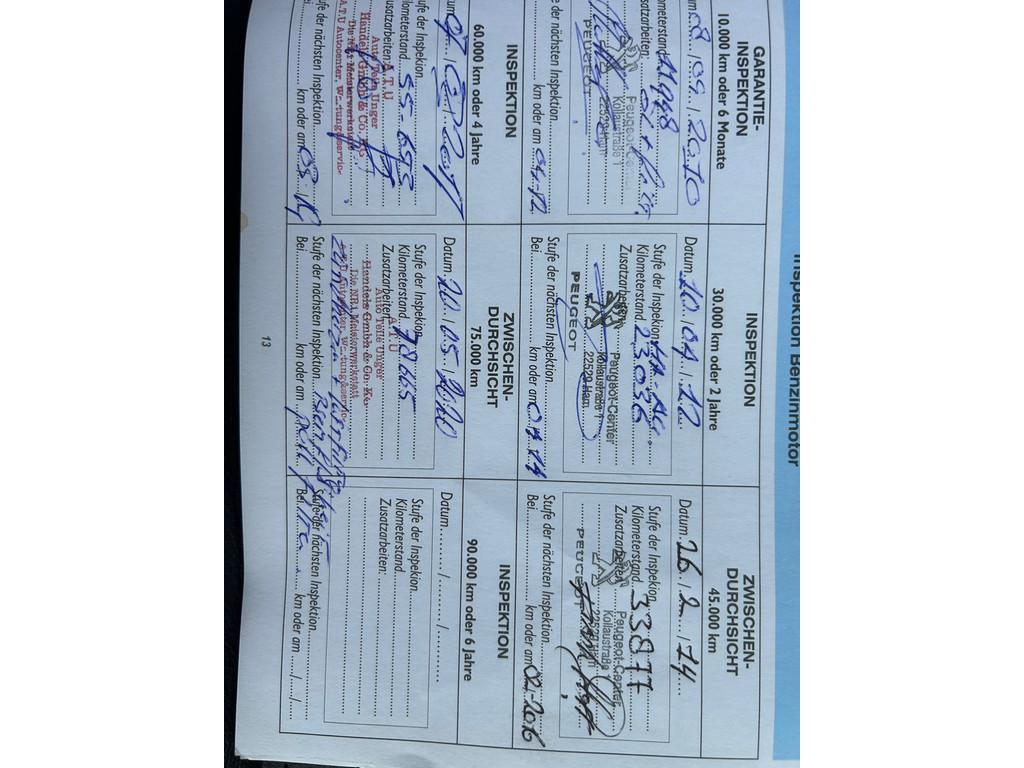 Inspektion Benzinmotor
GARANTIE-
INSPEKTION
10.000 km oder 6 Monate
08.09.2010
Kilometerstand 11948
Zusatzarbeiten:
Peugeot-Center
Kollaustraße 1
22529 Ham
PEUGEOT
Stufe der nächsten Inspektion
km oder am
INSPEKTION
30.000 km oder 2 Jahre
Datum 10 / 04 / 12
Stufe der Inspektion
Kilometerstand 23036
Zusatzarbeiten
Peugeot-Center
Kollaustraße 1
22529 Ham
PEUGEOT
Stufe der nächsten Inspektion
Bei km oder am 04.14
ZWISCHEN-
DURCHSICHT
45.000 km
Datum 26 / 2 / 14
Stufe der Inspekion
Kilometerstand 33877
Zusatzarbeiten
Peugeot-Center
Kollaustraße 1
22529 Ham
PEUGEOT
Stufe der nächsten Inspektion
Bei km oder am 02-2016
INSPEKTION
60.000 km oder 4 Jahre
Stufe der Inspekion
Kilometerstand 55-695
Zusatzarbeiten
A.T.U
Auto Teile Unger
Handels GmbH & Co. KG
Die NR1 Meisterwerkstatt
A.T.U Autocenter, Wartungsservic-
Stufe der nächsten Inspektion
km oder am
ZWISCHEN-
DURCHSICHT
75.000 km
Datum 20 / 05 / 2020
Stufe der Inspekion
Kilometerstand 78665
Zusatzarbeiten
A.T.U
Auto Teile Unger
Handels GmbH & Co. KG
Die NR1 Meisterwerkstatt
Stufe der nächsten Inspektion
Bei km oder am
INSPEKTION
90.000 km oder 6 Jahre
Datum / /
Stufe der Inspekion
Kilometerstand
Zusatzarbeiten:
Stufe der nächsten Inspektion
Bei km oder am / /
13